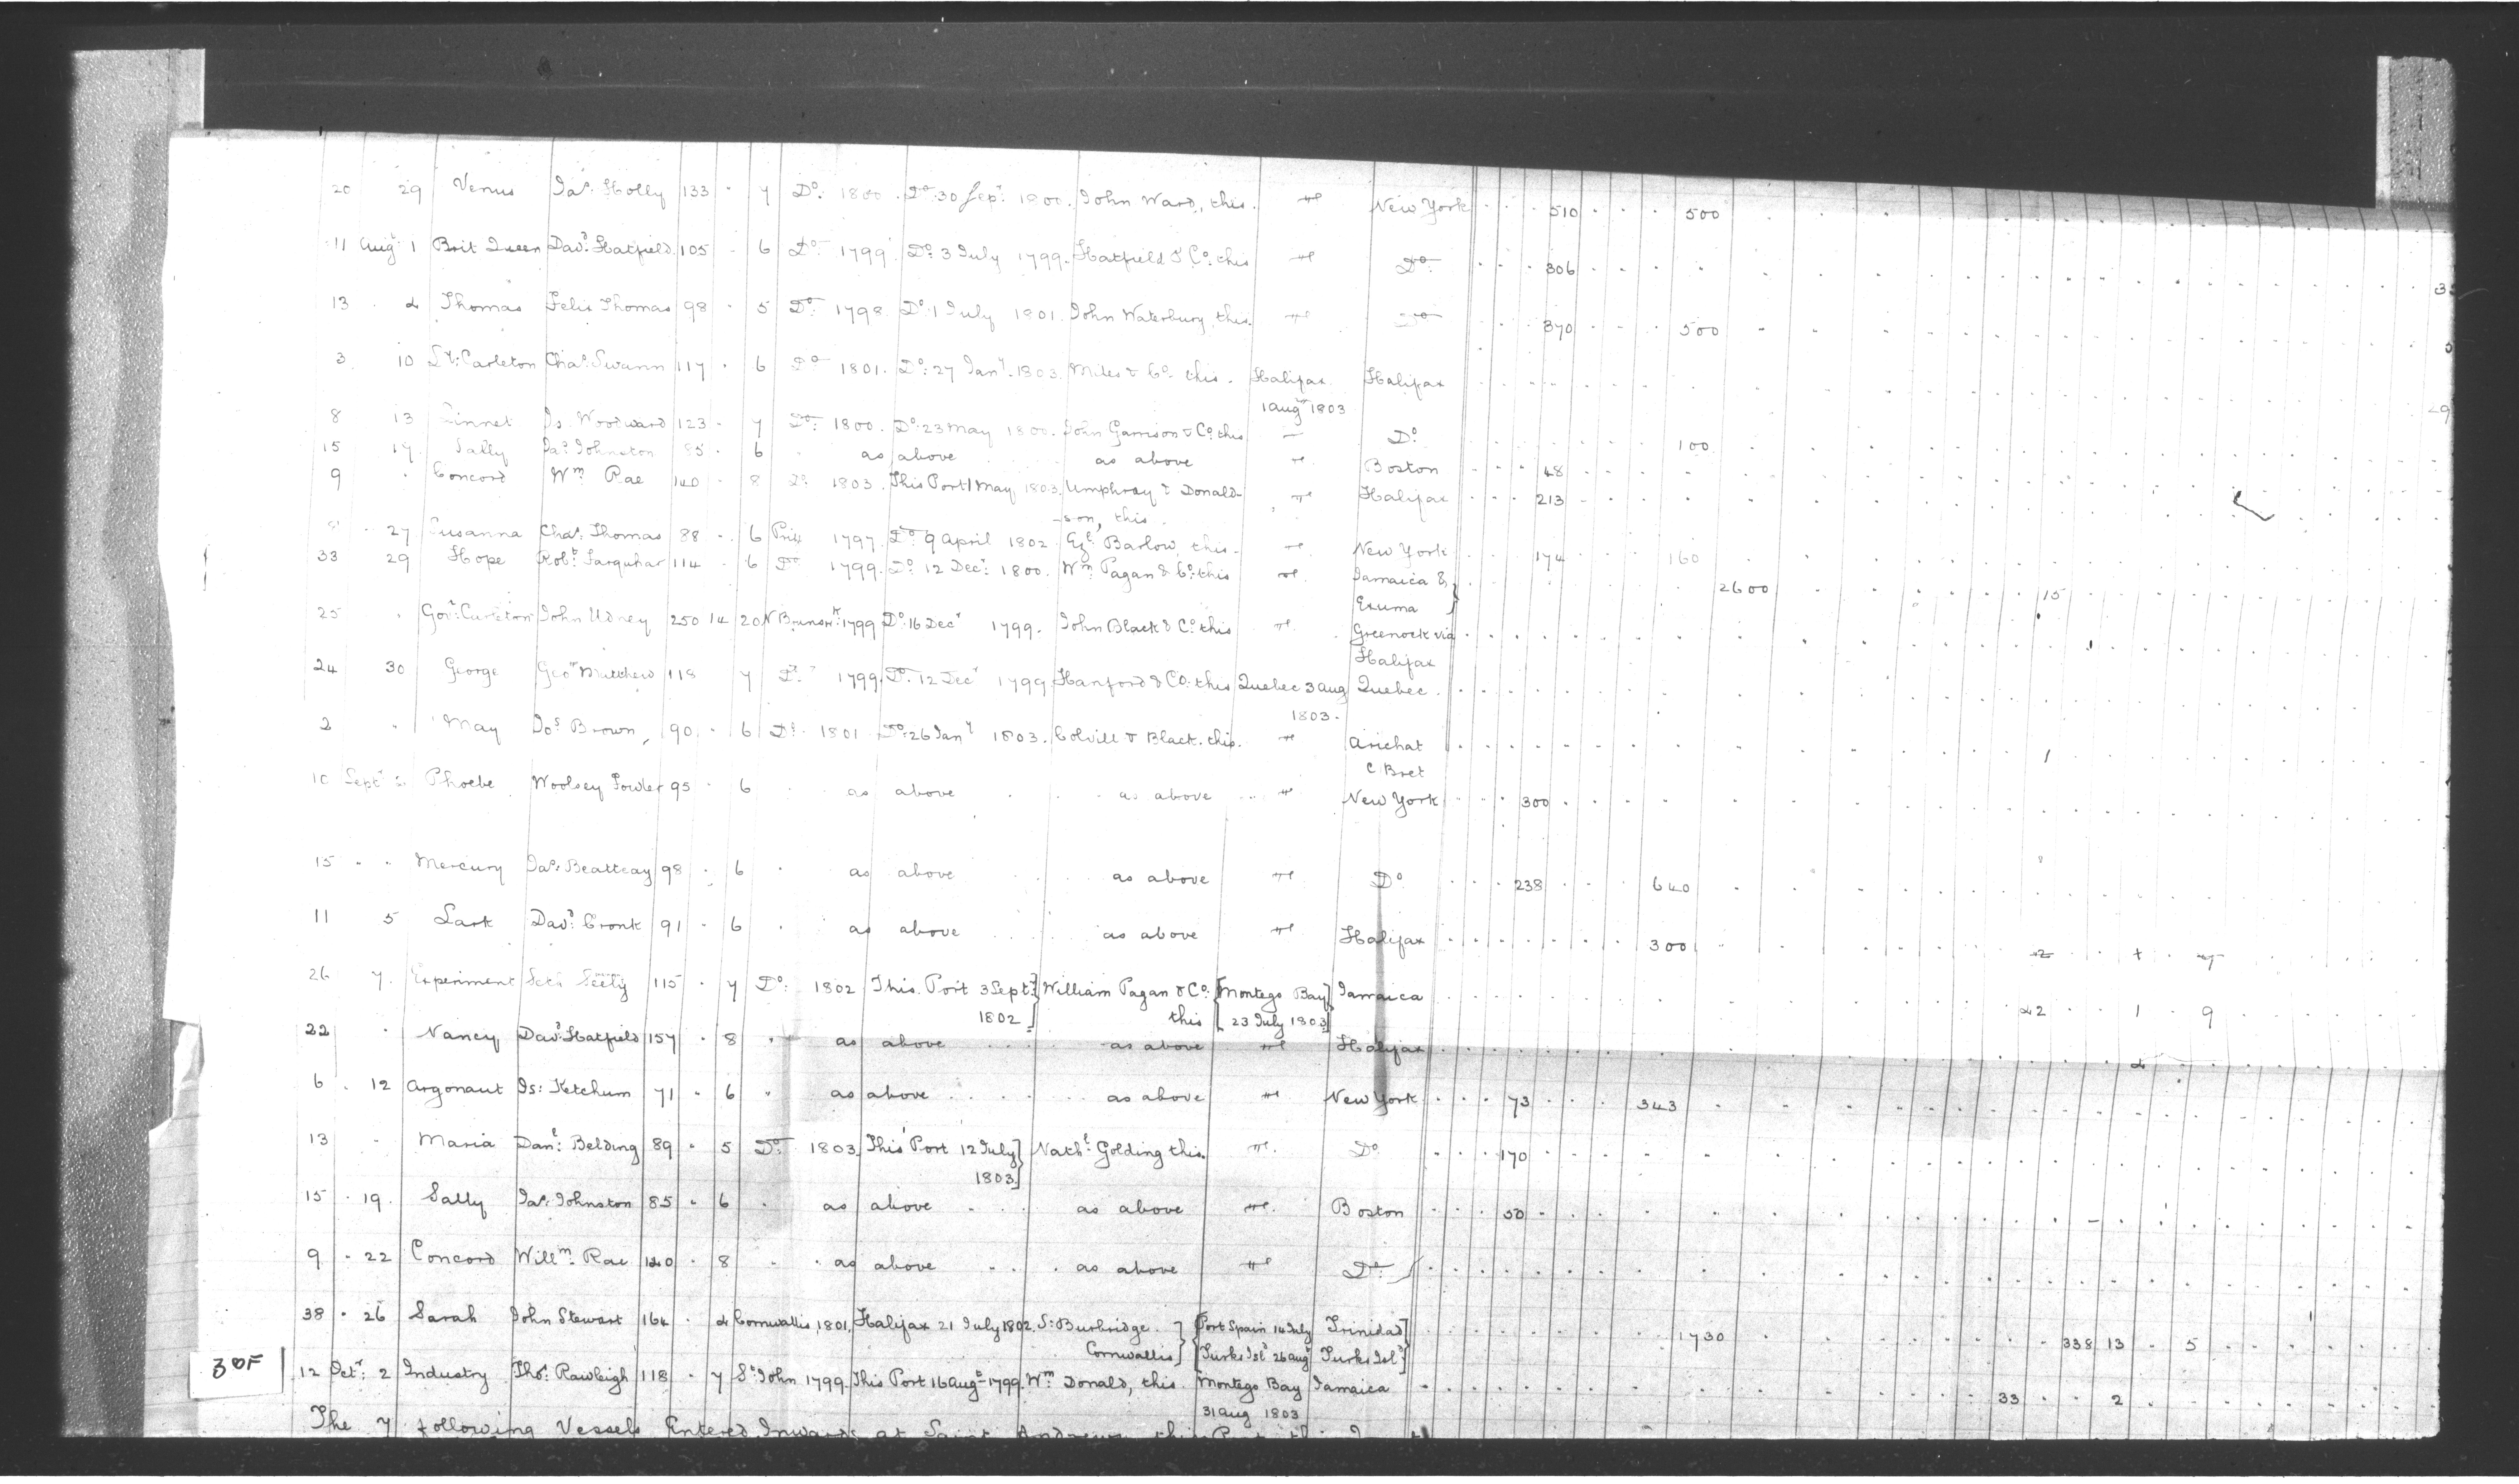 20 29 Venus Jas. Holly 133 - 7 Do. 1800. Do. 30 Sepr. 1800. John Ward, this. New York 510 500
11 Augt 1 Brit Queen Davd. Hatfield 105 - 6 Do. 1799. Do. 3 July 1799. Hatfield & Co. this Do. 306
13 2 Thomas Felix Thomas 98 - 5 Do. 1798. Do. 1 July 1801. John Waterbury, this. Do. 370 500
3 10 Sr. Carleton Chas. Swann 117 - 6 Do. 1801. Do. 27 Jany. 1803. Miles & Co. this. Halifax Halifax
1 Augt 1803
8 13 Linnet Is. Woodward 123 - 7 Do. 1800. Do. 23 May 1800. John Garrison & Co. this Do. 100
15 17 Sally Jas. Johnston 85 - 6 as above as above Boston 48
9 Concord Wm. Rae 140 - 8 Do. 1803. This Port 1 May 1803. Umphray & Donald- Halifax 213
-son, this.
27 Susanna Chas. Thomas 88 - 6 Prize 1797. Do. 9 April 1802. Ezl. Barlow, this. New York 174 160
33 29 Hope Robt. Farquhar 114 - 6 Do. 1799. Do. 12 Decr. 1800. Wm. Pagan & Co. this Jamaica & 2600 15
Exuma
25 Govr. Carleton John Udney 250 14 20 N Brunswk. 1799 Do. 16 Decr 1799. John Black & Co. this Greenock via
Halifax
24 30 George Geo. Mutthew 118 7 Do. 1799 Do. 12 Decr 1799 Hanford & Co. this Quebec 3 Aug Quebec.
1803.
2 " May Jos. Brown, 90. - 6 Do. 1801 Do. 26 Jany 1803. Colvill & Black. this. Arichat 1
C Bret
10 Septr 2 Phoebe Woolsey Fowler 95 - 6 as above as above New York 300
15 " " Mercury Jas. Beatteay 98 - 6 as above as above Do 238 640
11 5 Lark Davd. Cronk 91 - 6 as above as above Halifax 300
26 7. Experiment Seth Seely 115 - 7 Do. 1802 This Port 3 Sept. William Pagan & Co. [Montego Bay] Jamaica 22 1 9
1802 this [23 July 1803]
22 Nancy Davd. Hatfield 157 - 8 " as above as above Halifax
6 12 Argonaut Is: Ketchum 71 - 6 " as above as above New York 73 343
13 - Maria Danl. Belding 89 - 5 Do. 1803. This Port 12 July Nathl. Golding this. Do 170
1803.
15 19. Sally Jas. Johnston 85 - 6 as above as above Boston 50
9 22 Concord Willm. Rae 140 - 8 as above as above Do.
38 26 Sarah John Stewart 164 2 Cornwallis, 1801. Halifax 21 July 1802. S. Burbridge. Port Spain 14 July Trinidad 1730 338 13 5
Cornwallis Turks Isld 26 Augt Turks Isld
30F
12 Octr. 2 Industry Thos. Rawleigh 118 - 7 St. John 1799. This Port 16 Augt 1799. Wm. Donald, this. Montego Bay Jamaica 33 2
31 Aug 1803
The 7 following Vessels Entered Inwards at Saint Andrews, this Port